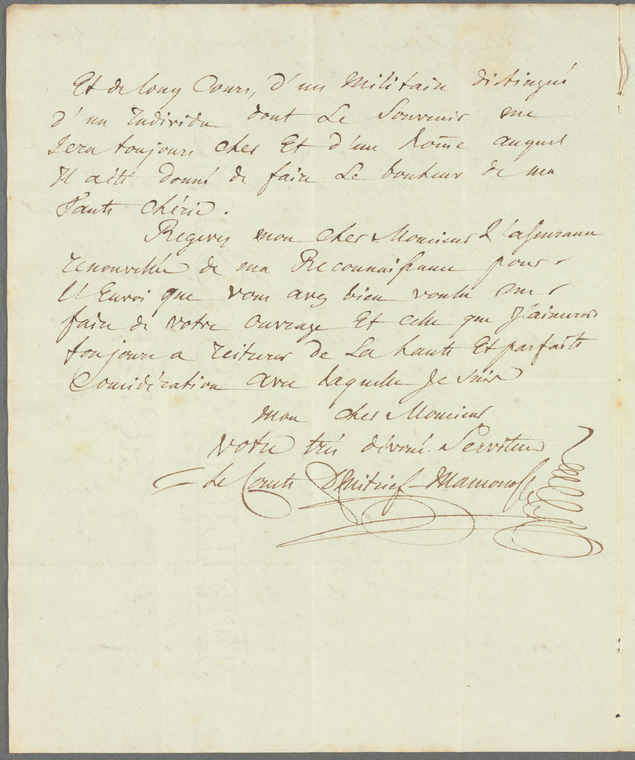 Et de long Cours, d'un Militaire distingué
d'un Individu dont Le Souvenir me
Sera toujours cher Et d'un homme auquel
Il a été donné de faire Le bonheur de ma
Tante chérie.
Recevez mon cher Monsieur L'assurance
renouvellée de ma Reconnaissance pour
L'Envoi que vous avez bien voulu me
faire de votre ouvrage Et celle que J'aimerai
toujours a réiterer de La haute Et parfaite
Considération avec laquelle Je suis
mon cher Monsieur
votre très dévoué Serviteur
Le Comte Dmitrief-Mamonoff